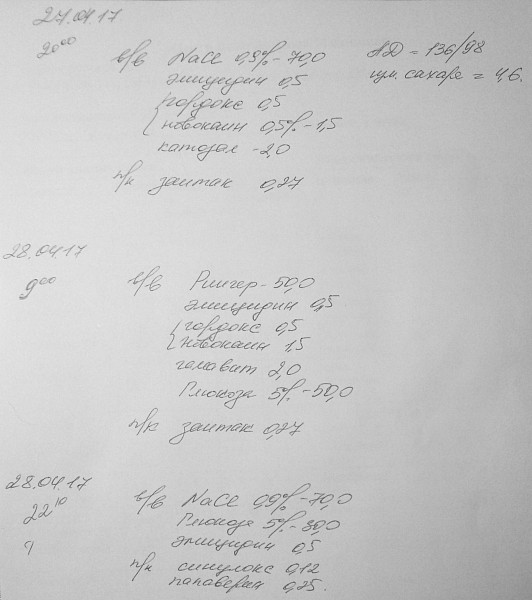 27.04.17
20⁰⁰ в/в NaCl 0,9% - 70,0 АД = 136/98
эмицидин 0,5 ур. сахара = 4,6.
гордокс 0,5
новокаин 0,5% - 1,5
катозал - 2,0
п/к зантак 0,27
28.04.17
9⁰⁰ в/в Рингер - 50,0
эмицидин 0,5
гордокс 0,5
новокаин 1,5
гамавит 2,0
Глюкоза 5% - 50,0
п/к зантак 0,27
28.04.17
22¹⁰ в/в NaCl 0,9% - 70,0
Глюкоза 5% - 30,0
эмицидин 0,5
п/к синулокс 0,12
папаверин 0,25.